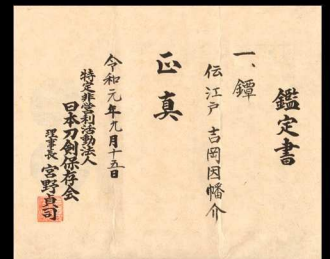 鑑定書
一、鐔
伝江戸 吉岡因幡介
正真
令和元年九月十五日
特定非営利活動法人
日本刀剣保存会
理事長 宮野貞司